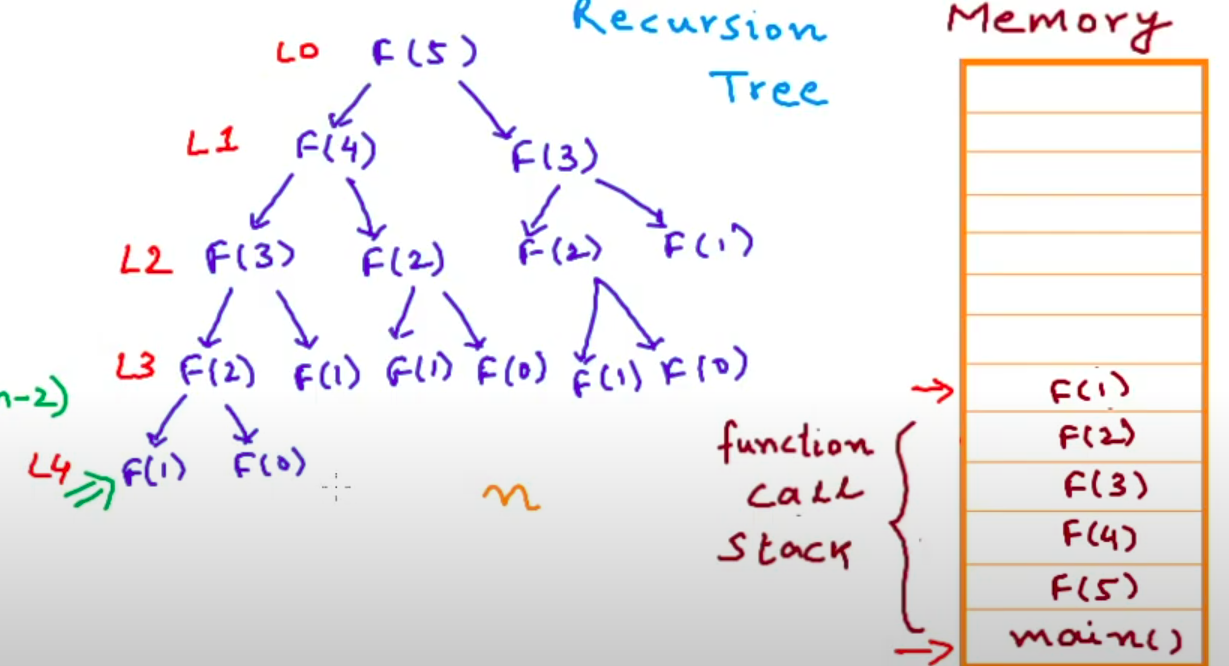 Recursion
Tree
Memory
L0 F(5)
L1 F(4) F(3)
L2 F(3) F(2) F(2) F(1)
L3 F(2) F(1) F(1) F(0) F(1) F(0)
n-2)
L4 F(1) F(0)
n
function
call
stack
F(1)
F(2)
F(3)
F(4)
F(5)
main()